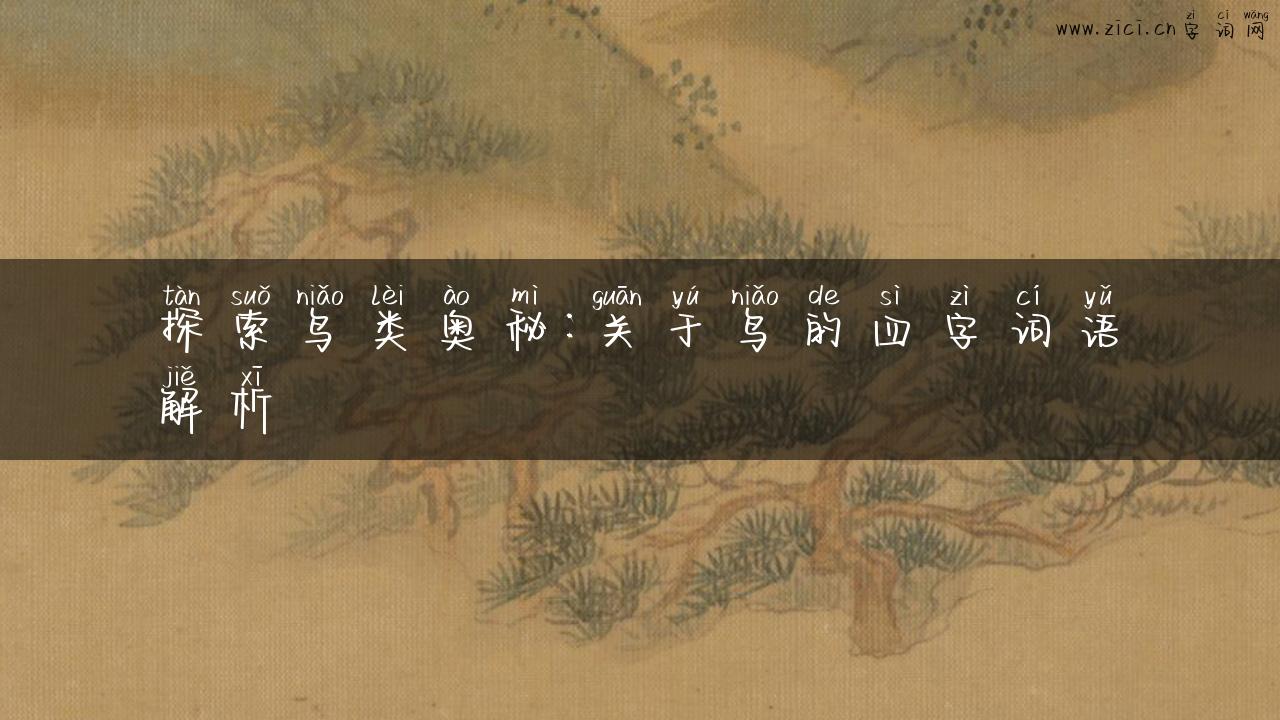 zì cí wǎng
www.zīcī.cn 字词网
tàn suǒ niǎo lèi ào mì guān yú niǎo de sì zì cí yǔ
探索鸟类奥秘:关于鸟的四字词语
jiě xī
解析